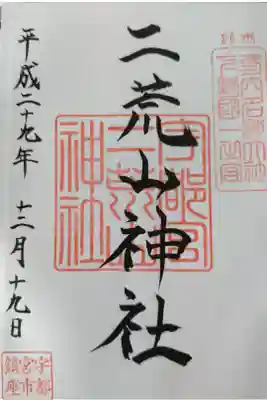 二荒山神社
平成二十九年 十二月十九日
宇都宮
二荒山
神社
宇都
宮市
鎮座